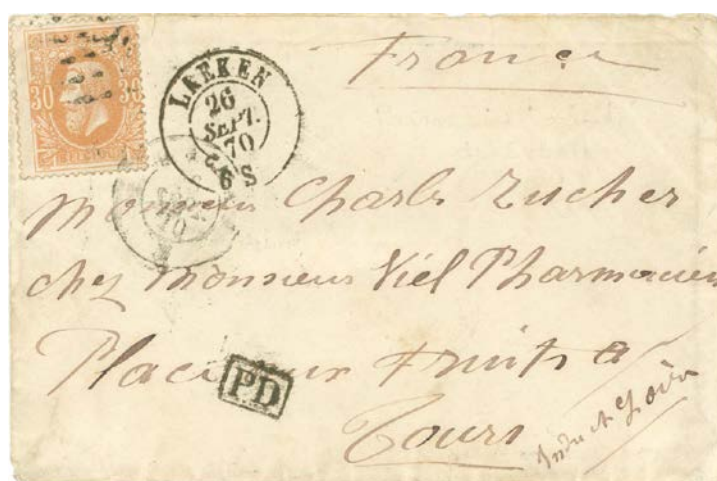 France
30 30
LAEKEN
26
SEPT.
70
6 S
Monsieur Charles Zucher
chez Monsieur Viel Pharmacien
Place aux Fruits a
PD
Tours
Indre et Loire